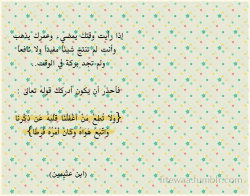 إذا رأيت وقتك يمضي، وعمرك يذهب
وأنت لم تنتج شيئا مفيدا ولا نافعا
ولم تجد بركة في الوقت..
فأحذر أن يكون أدركك قوله تعالى :
{وَلَا تُطِعْ مَنْ أَغْفَلْنَا قَلْبَهُ عَنْ ذِكْرِنَا
وَاتَّبَعَ هَوَاهُ وَكَانَ أَمْرُهُ فُرُطًا}
(ابن عثيمين)
.tumblr.com